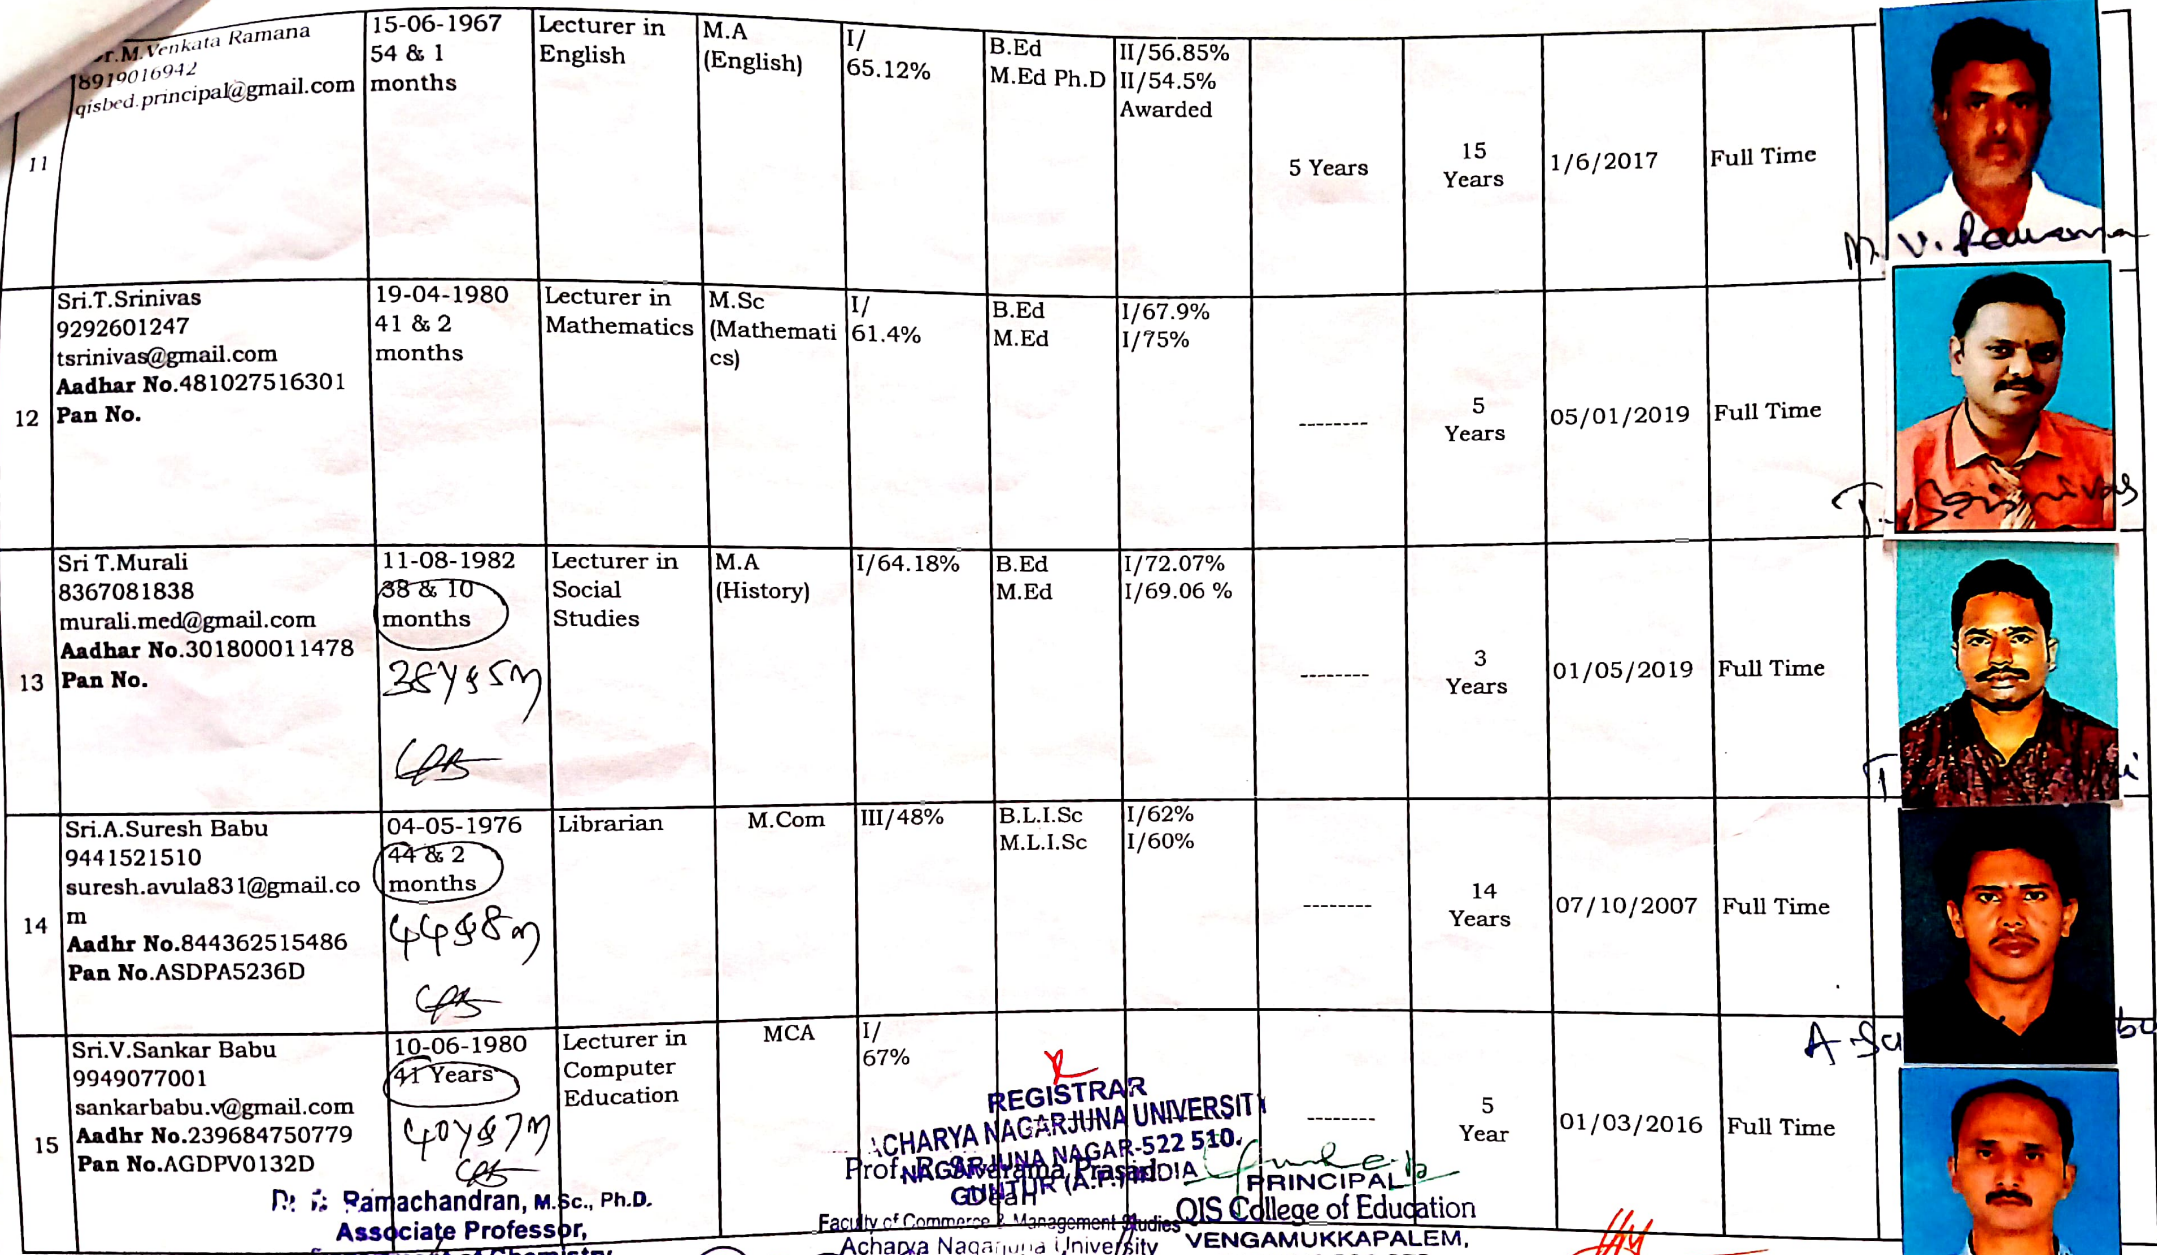 11
M.Venkata Ramana
8919016942
qisbed.principal@gmail.com
15-06-1967
54 & 1
months
Lecturer in
English
M.A
(English)
I/
65.12%
B.Ed
M.Ed Ph.D
II/56.85%
II/54.5%
Awarded
5 Years
15
Years
1/6/2017
Full Time
M. V. Ramana
12
Sri.T.Srinivas
9292601247
tsrinivas@gmail.com
Aadhar No.481027516301
Pan No.
19-04-1980
41 & 2
months
Lecturer in
Mathematics
M.Sc
(Mathemati
cs)
I/
61.4%
B.Ed
M.Ed
I/67.9%
I/75%
--------
5
Years
05/01/2019
Full Time
T. Srinivas
13
Sri T.Murali
8367081838
murali.med@gmail.com
Aadhar No.301800011478
Pan No.
11-08-1982
38 & 10
months
38y & 5m
Lecturer in
Social
Studies
M.A
(History)
I/64.18%
B.Ed
M.Ed
I/72.07%
I/69.06 %
--------
3
Years
01/05/2019
Full Time
14
Sri.A.Suresh Babu
9441521510
suresh.avula831@gmail.co
m
Aadhr No.844362515486
Pan No.ASDPA5236D
04-05-1976
44 & 2
months
44 & 8m
Librarian
M.Com
III/48%
B.L.I.Sc
M.L.I.Sc
I/62%
I/60%
--------
14
Years
07/10/2007
Full Time
15
Sri.V.Sankar Babu
9949077001
sankarbabu.v@gmail.com
Aadhr No.239684750779
Pan No.AGDPV0132D
10-06-1980
41 Years
40y & 7m
Lecturer in
Computer
Education
MCA
I/
67%
--------
5
Year
01/03/2016
Full Time
REGISTRAR
ACHARYA NAGARJUNA UNIVERSITY
NAGARJUNA NAGAR-522 510.
GUNTUR (A.P.) INDIA
Prof. Prasad
Dean
Faculty of Commerce & Management Studies
Acharya Nagarjuna University
Ramachandran, M.Sc., Ph.D.
Associate Professor,
PRINCIPAL
QIS College of Education
VENGAMUKKAPALEM,